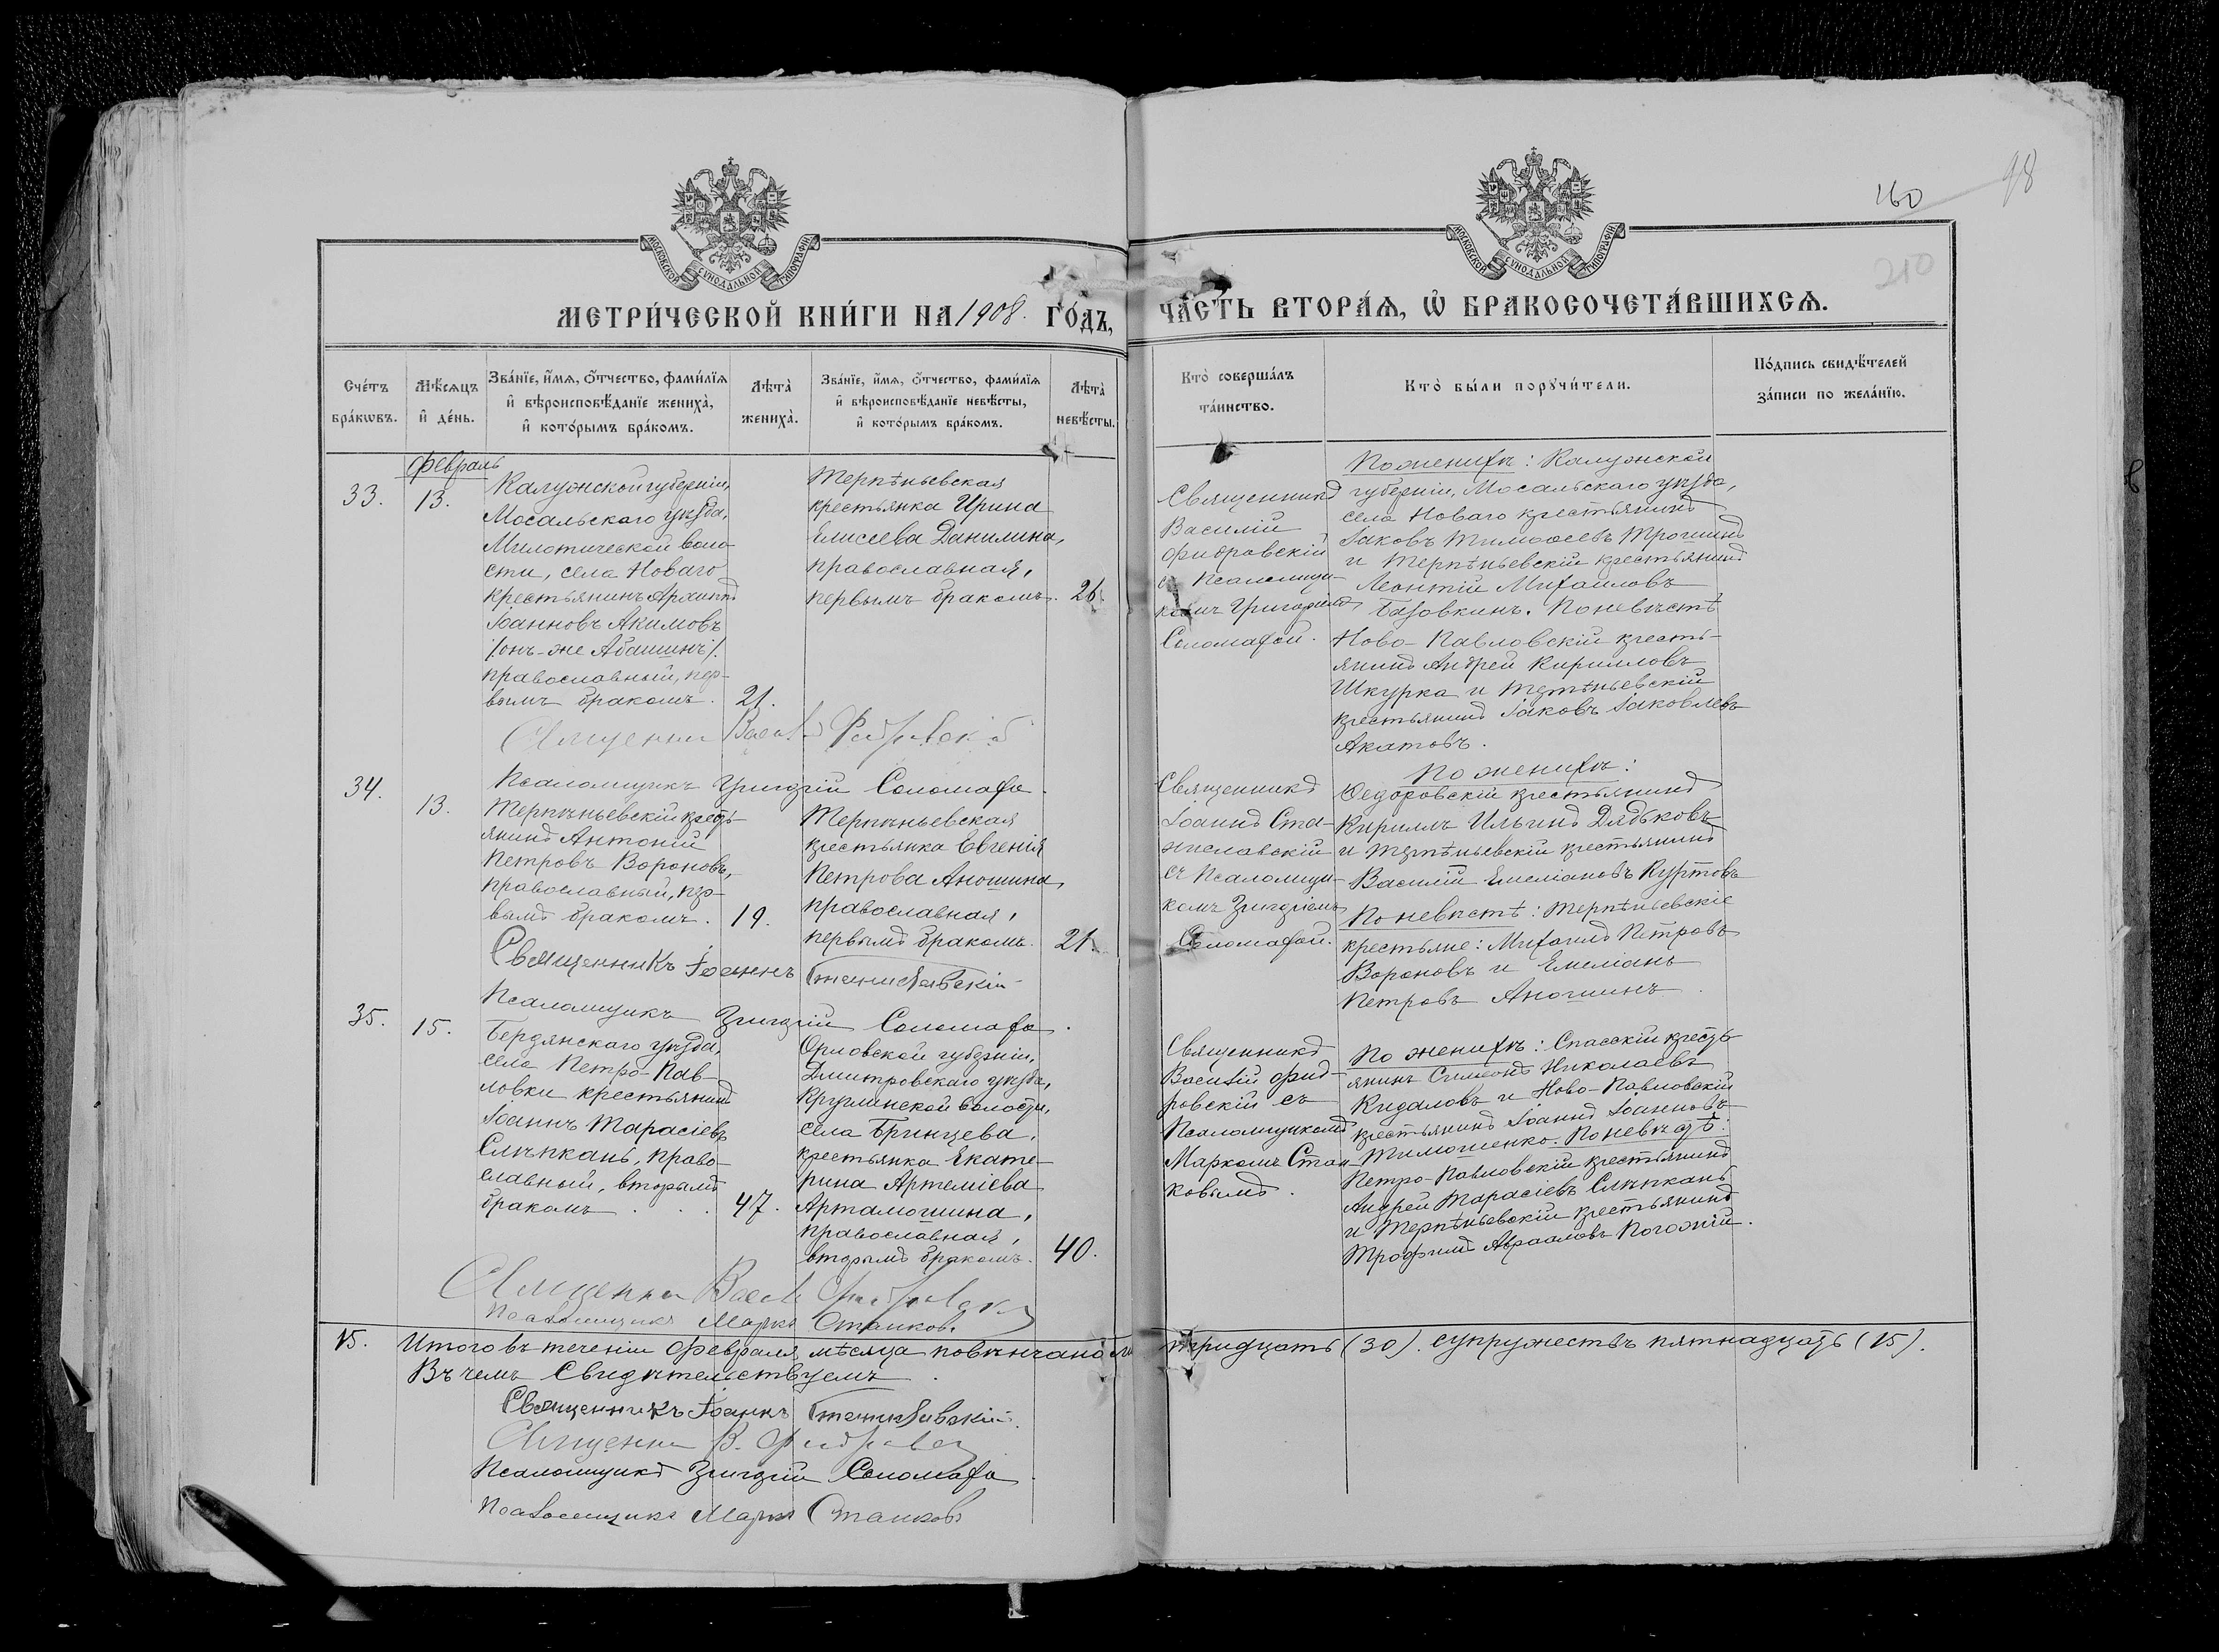 160
98
210
МОСКОВСКОЙ СѴНОДАЛЬНОЙ ТИПОГРАФІИ
МОСКОВСКОЙ СѴНОДАЛЬНОЙ ТИПОГРАФІИ
МЕТРИ́ЧЕСКОЙ КНИ́ГИ НА 1908. ГО́ДЪ,
ЧА́СТЬ ВТОРА́Ѧ, Ѽ БРАКОСОЧЕТА́ВШИХСѦ.
Сче́тъ бра́кѡвъ.
Мѣ́сѧцъ и҆ де́нь.
Зва́нїе, и҆́мѧ, ѻ҆́тчество, фами́лїѧ
и҆ вѣроисповѣ́данїе жениха̀,
и҆ кото́рымъ бра́комъ.
Лѣта̀ жениха̀.
Зва́нїе, и҆́мѧ, ѻ҆́тчество, фами́лїѧ
и҆ вѣроисповѣ́данїе невѣ́сты,
и҆ кото́рымъ бра́комъ.
Лѣта̀ невѣ́сты.
Кто̀ соверша́лъ
та́инство.
Кто̀ бы́ли порꙋчи́тели.
По́дпись свидѣ́телей
за́писи по жела́нїю.
Февраль
33.
13.
Калужской губерніи,
Мосальскаго уѣзда,
Милотической воло-
сти, села Новаго
крестьянинъ Архиппъ
Іоанновъ Акимовъ
/онъ-же Абашинъ/.
православный, пер-
вымъ бракомъ.
21.
Терпѣньевская
крестьянка Ирина
Елисеева Данилина,
православная,
первымъ бракомъ.
26.
Священникъ
Василій
Фидровскій
съ Псаломщи-
комъ Григоріемъ
Соломахой.
По женихѣ: Калужской
губерніи, Мосальскаго уѣзда,
села Новаго крестьянинъ
Іаковъ Тимоѳеевъ Трошинъ
и Терпѣньевскій крестьянинъ
Леонтій Михаиловъ
Базовкинъ. По невѣстѣ
Ново-Павловскій кресть-
янинъ Андрей Кирилловъ
Шкурка и Терпѣньевскій
крестьянинъ Іаковъ Іаковлевъ
Акатовъ.
Священникъ Василій Фидровскій
Псаломщикъ Григорій Соломаха.
34.
13.
Терпѣньевскій кресть-
янинъ Антоній
Петровъ Вороновъ,
православный, пер-
вымъ бракомъ.
19.
Терпѣньевская
крестьянка Евгенія
Петрова Аношина,
православная,
первымъ бракомъ.
21.
Священникъ
Іоаннъ Ста-
ниславскій
съ Псаломщи-
комъ Григоріемъ
Соломахой.
По женихѣ:
Ѳедоровскій крестьянинъ
Кириллъ Ильинъ Дядьковъ
и Терпѣньевскій крестьянинъ
Василій Емеліановъ Куртовъ
По невѣстѣ: Терпѣньевскіе
крестьяне: Михаилъ Петровъ
Вороновъ и Емеліанъ
Петровъ Аношинъ.
Священникъ Іоаннъ Станиславскій
Псаломщикъ Григорій Соломаха.
35.
15.
Бердянскаго уѣзда,
села Петро-Пав-
ловки крестьянинъ
Іоаннъ Тарасіевъ
Слѣпканъ, право-
славный, вторымъ
бракомъ . . .
47.
Орловской губерніи,
Дмитровскаго уѣзда,
Круглинской волости,
села Бринцева,
крестьянка Екате-
рина Артеміева
Артамошина,
православная,
вторымъ бракомъ.
40.
Священникъ
Василій Фид-
ровскій съ
Псаломщикомъ
Маркомъ Стан-
ковымъ.
По женихѣ: Спасскій кресть-
янинъ Симеонъ Николаевъ
Кидаловъ и Ново-Павловскій
крестьянинъ Іоаннъ Іоанновъ
Тимошенко. По невѣстѣ:
Петро-Павловскій крестьянинъ
Андрей Тарасіевъ Слѣпканъ
и Терпѣньевскій крестьянинъ
Трофимъ Авраамовъ Погожій.
Священникъ Василій Фидровскій
Псаломщикъ Маркъ Станковъ
15.
Итого въ теченіи Февраля мѣсяца повѣнчано тридцать (30). супружествъ пятнадцать (15).
Въ чемъ Свидѣтельствуемъ.
Священникъ Іоаннъ Станиславскій.
Священникъ В. Фидровскій
Псаломщикъ Григорій Соломаха.
Псаломщикъ Маркъ Станковъ